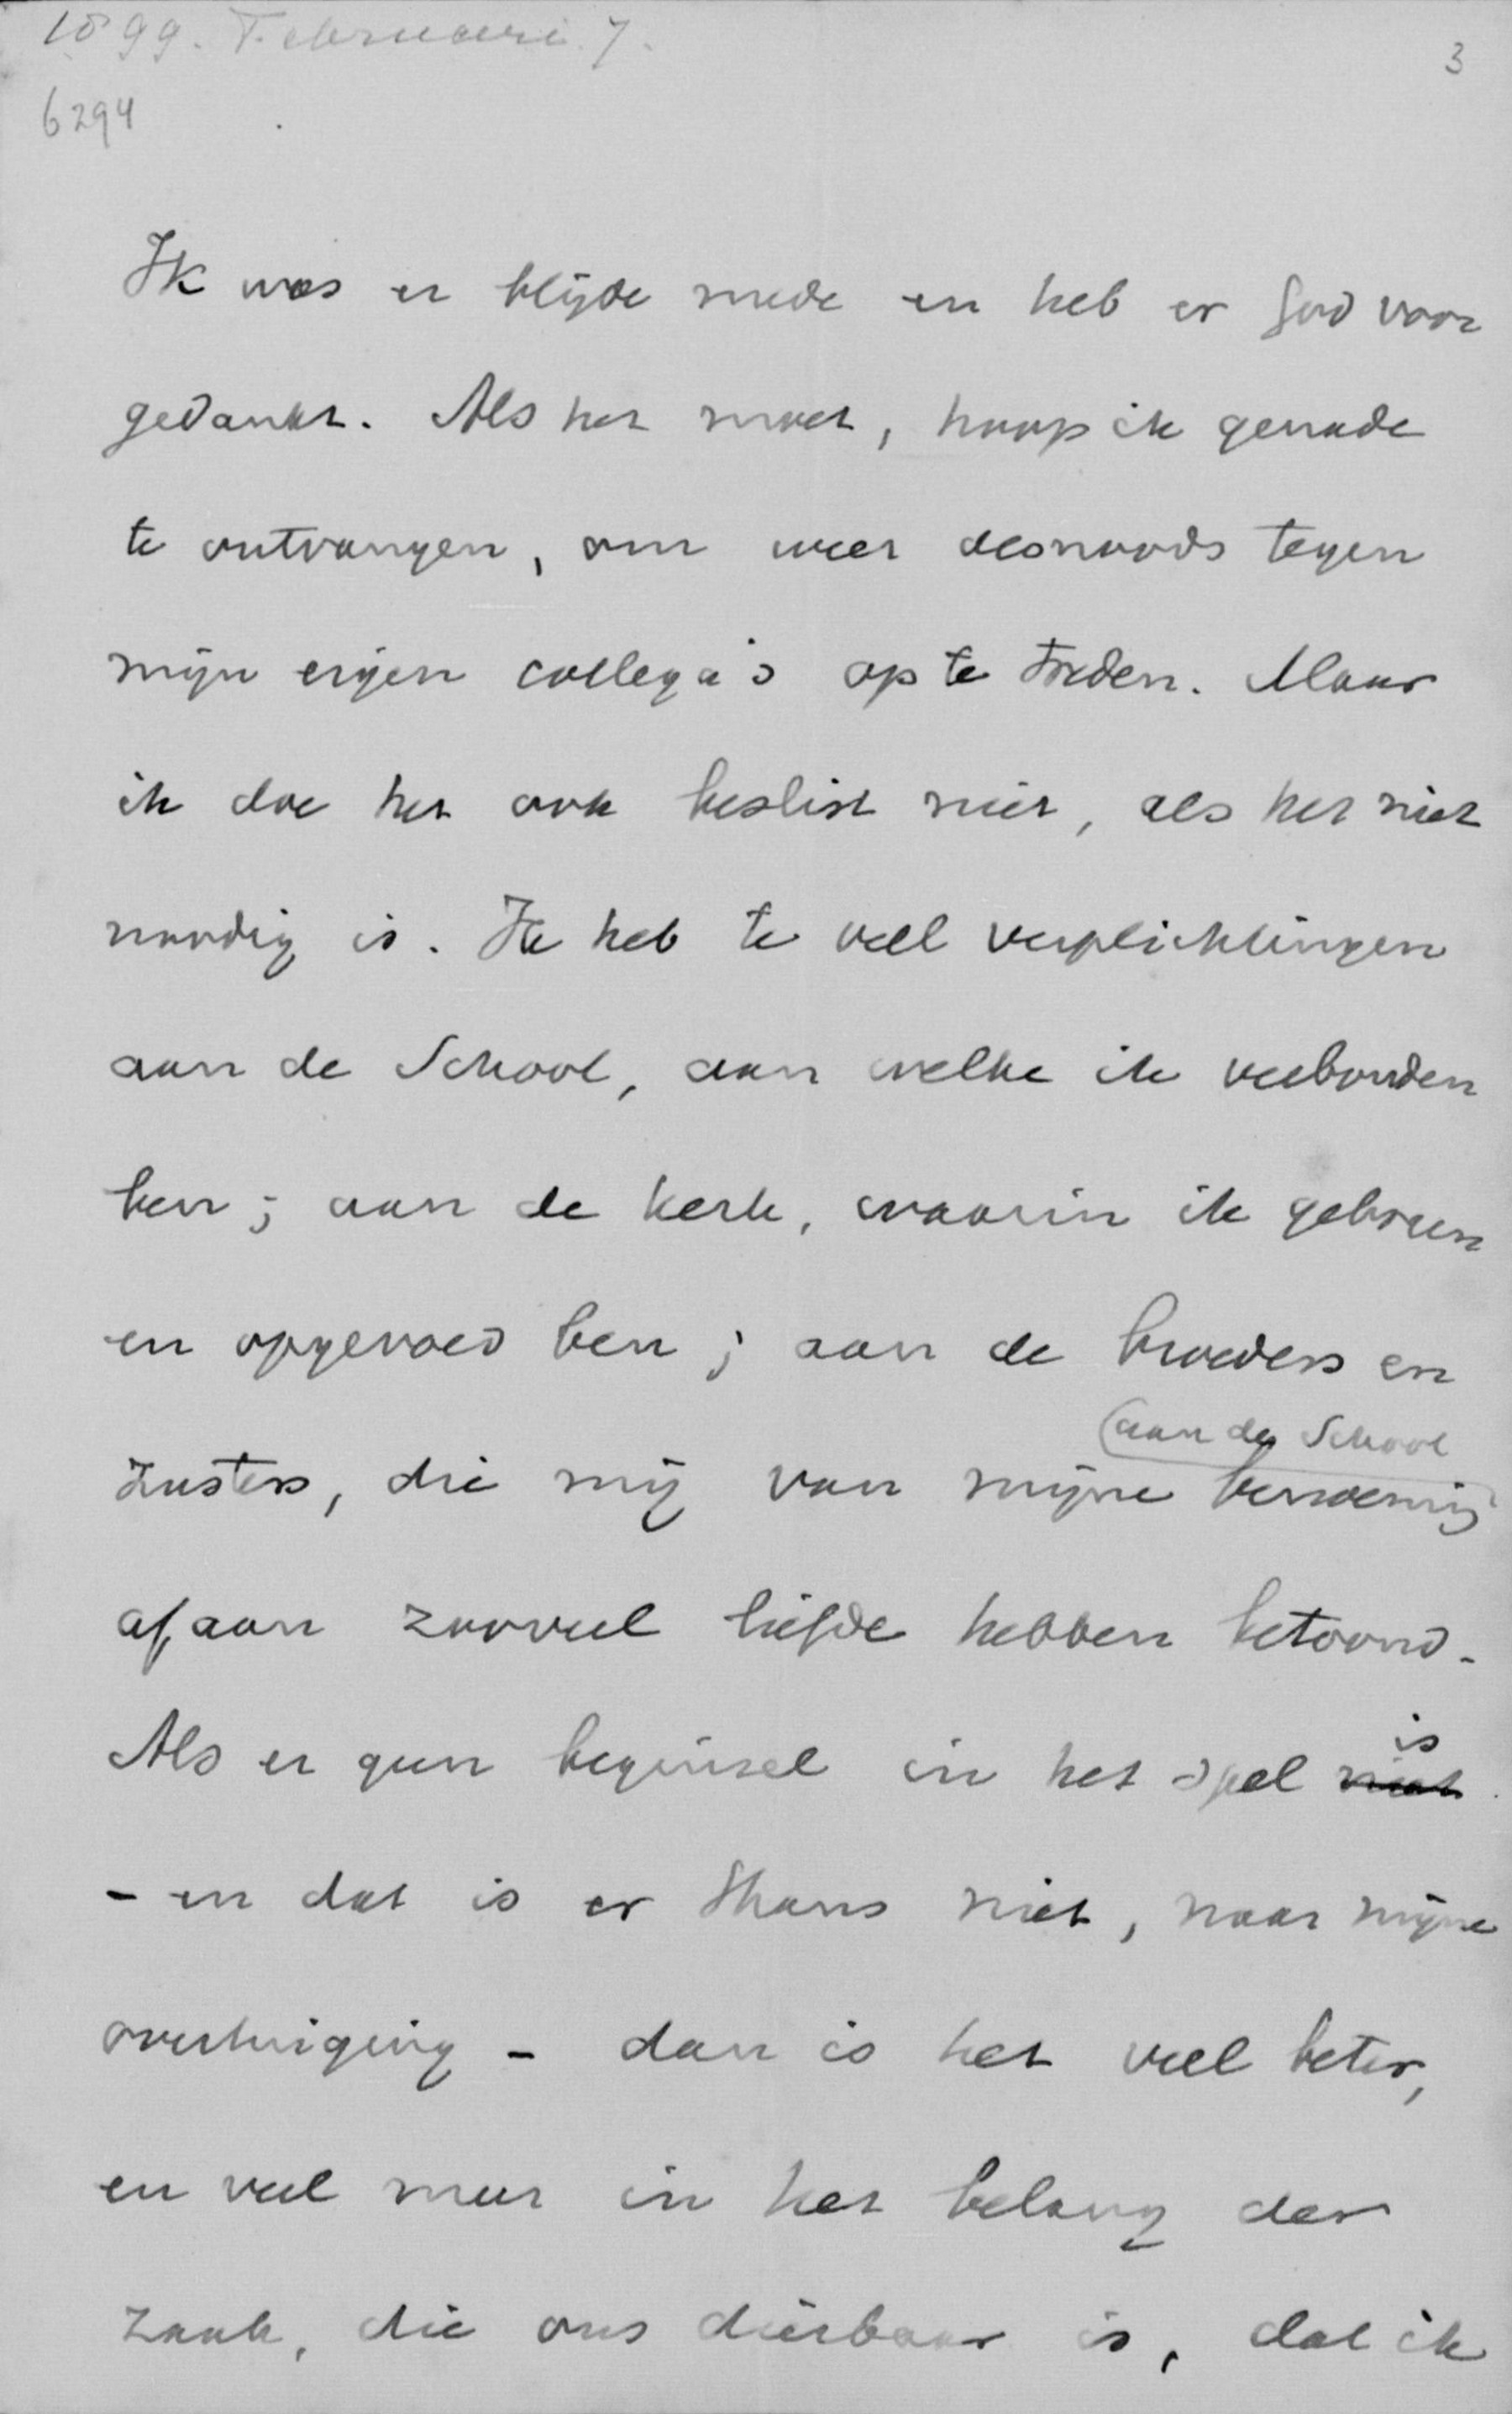 1899. Februari 7.
3
6294
Ik was er blijde mede en heb er God voor
gedankt. Als het moet, hoop ik genade
te ontvangen, om weer desnoods tegen
mijn eigen collega's op te treden. Maar
ik doe het ook beslist niet, als het niet
noodig is. Ik heb te veel verplichtingen
aan de School, aan welke ik verbonden
ben; aan de kerk, waarin ik geboren
en opgevoed ben; aan de broeders en
aan de School
zusters, die mij van mijne benoeming
af aan zooveel liefde hebben betoond.
is
Als er geen beginsel in het spel niet
- en dat is er thans niet, naar mijne
overtuiging - dan is het veel beter,
en veel meer in het belang der
zaak, die ons dierbaar is, dat ik